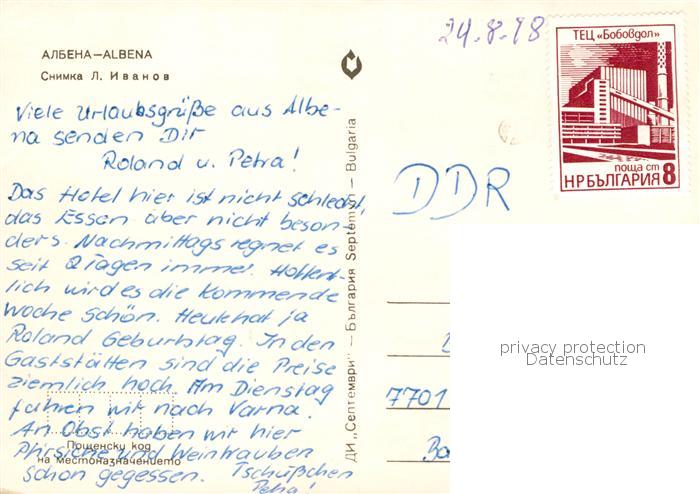 АЛБЕНА—ALBENA
Снимка Л. Иванов
24.8.78
ТЕЦ „Бобовдол"
поща ст
НРБЪЛГАРИЯ 8
Viele Urlaubsgrüße aus Albe-
na senden Dir
Roland u. Petra!
Das Hotel hier ist nicht schlecht,
das Essen aber nicht beson-
ders. Nachmittags regnet es
seit 2 Tagen immer. Hoffent-
lich wird es die kommende
Woche schön. Heute hat ja
Roland Geburtstag. In den
Gaststätten sind die Preise
ziemlich hoch. Am Dienstag
fahren wir nach Varna.
An Obst haben wir hier
Pfirsiche und Weintrauben
schon gegessen. Tschüßchen
Petra!
Пощенски код
на местоназначението
ДИ „Септември" — България Septemvri — Bulgaria
DDR
7701
privacy protection
Datenschutz